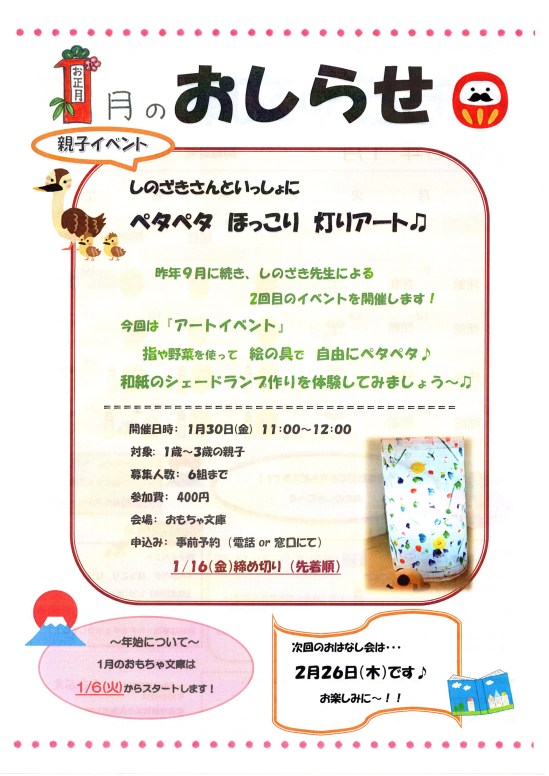 お正月
1月のおしらせ
親子イベント
しのざきさんといっしょに
ペタペタ ほっこり 灯りアート♫
昨年9月に続き、しのざき先生による
2回目のイベントを開催します!
今回は「アートイベント」
指や野菜を使って 絵の具で 自由にペタペタ♪
和紙のシェードランプ作りを体験してみましょう~♫
開催日時: 1月30日(金) 11:00~12:00
対象: 1歳~3歳の親子
募集人数: 6組まで
参加費: 400円
会場: おもちゃ文庫
申込み: 事前予約 (電話 or 窓口にて)
1/16(金)締め切り (先着順)
~年始について~
1月のおもちゃ文庫は
1/6(火)からスタートします!
次回のおはなし会は・・・
2月26日(木)です♪
お楽しみに~!!